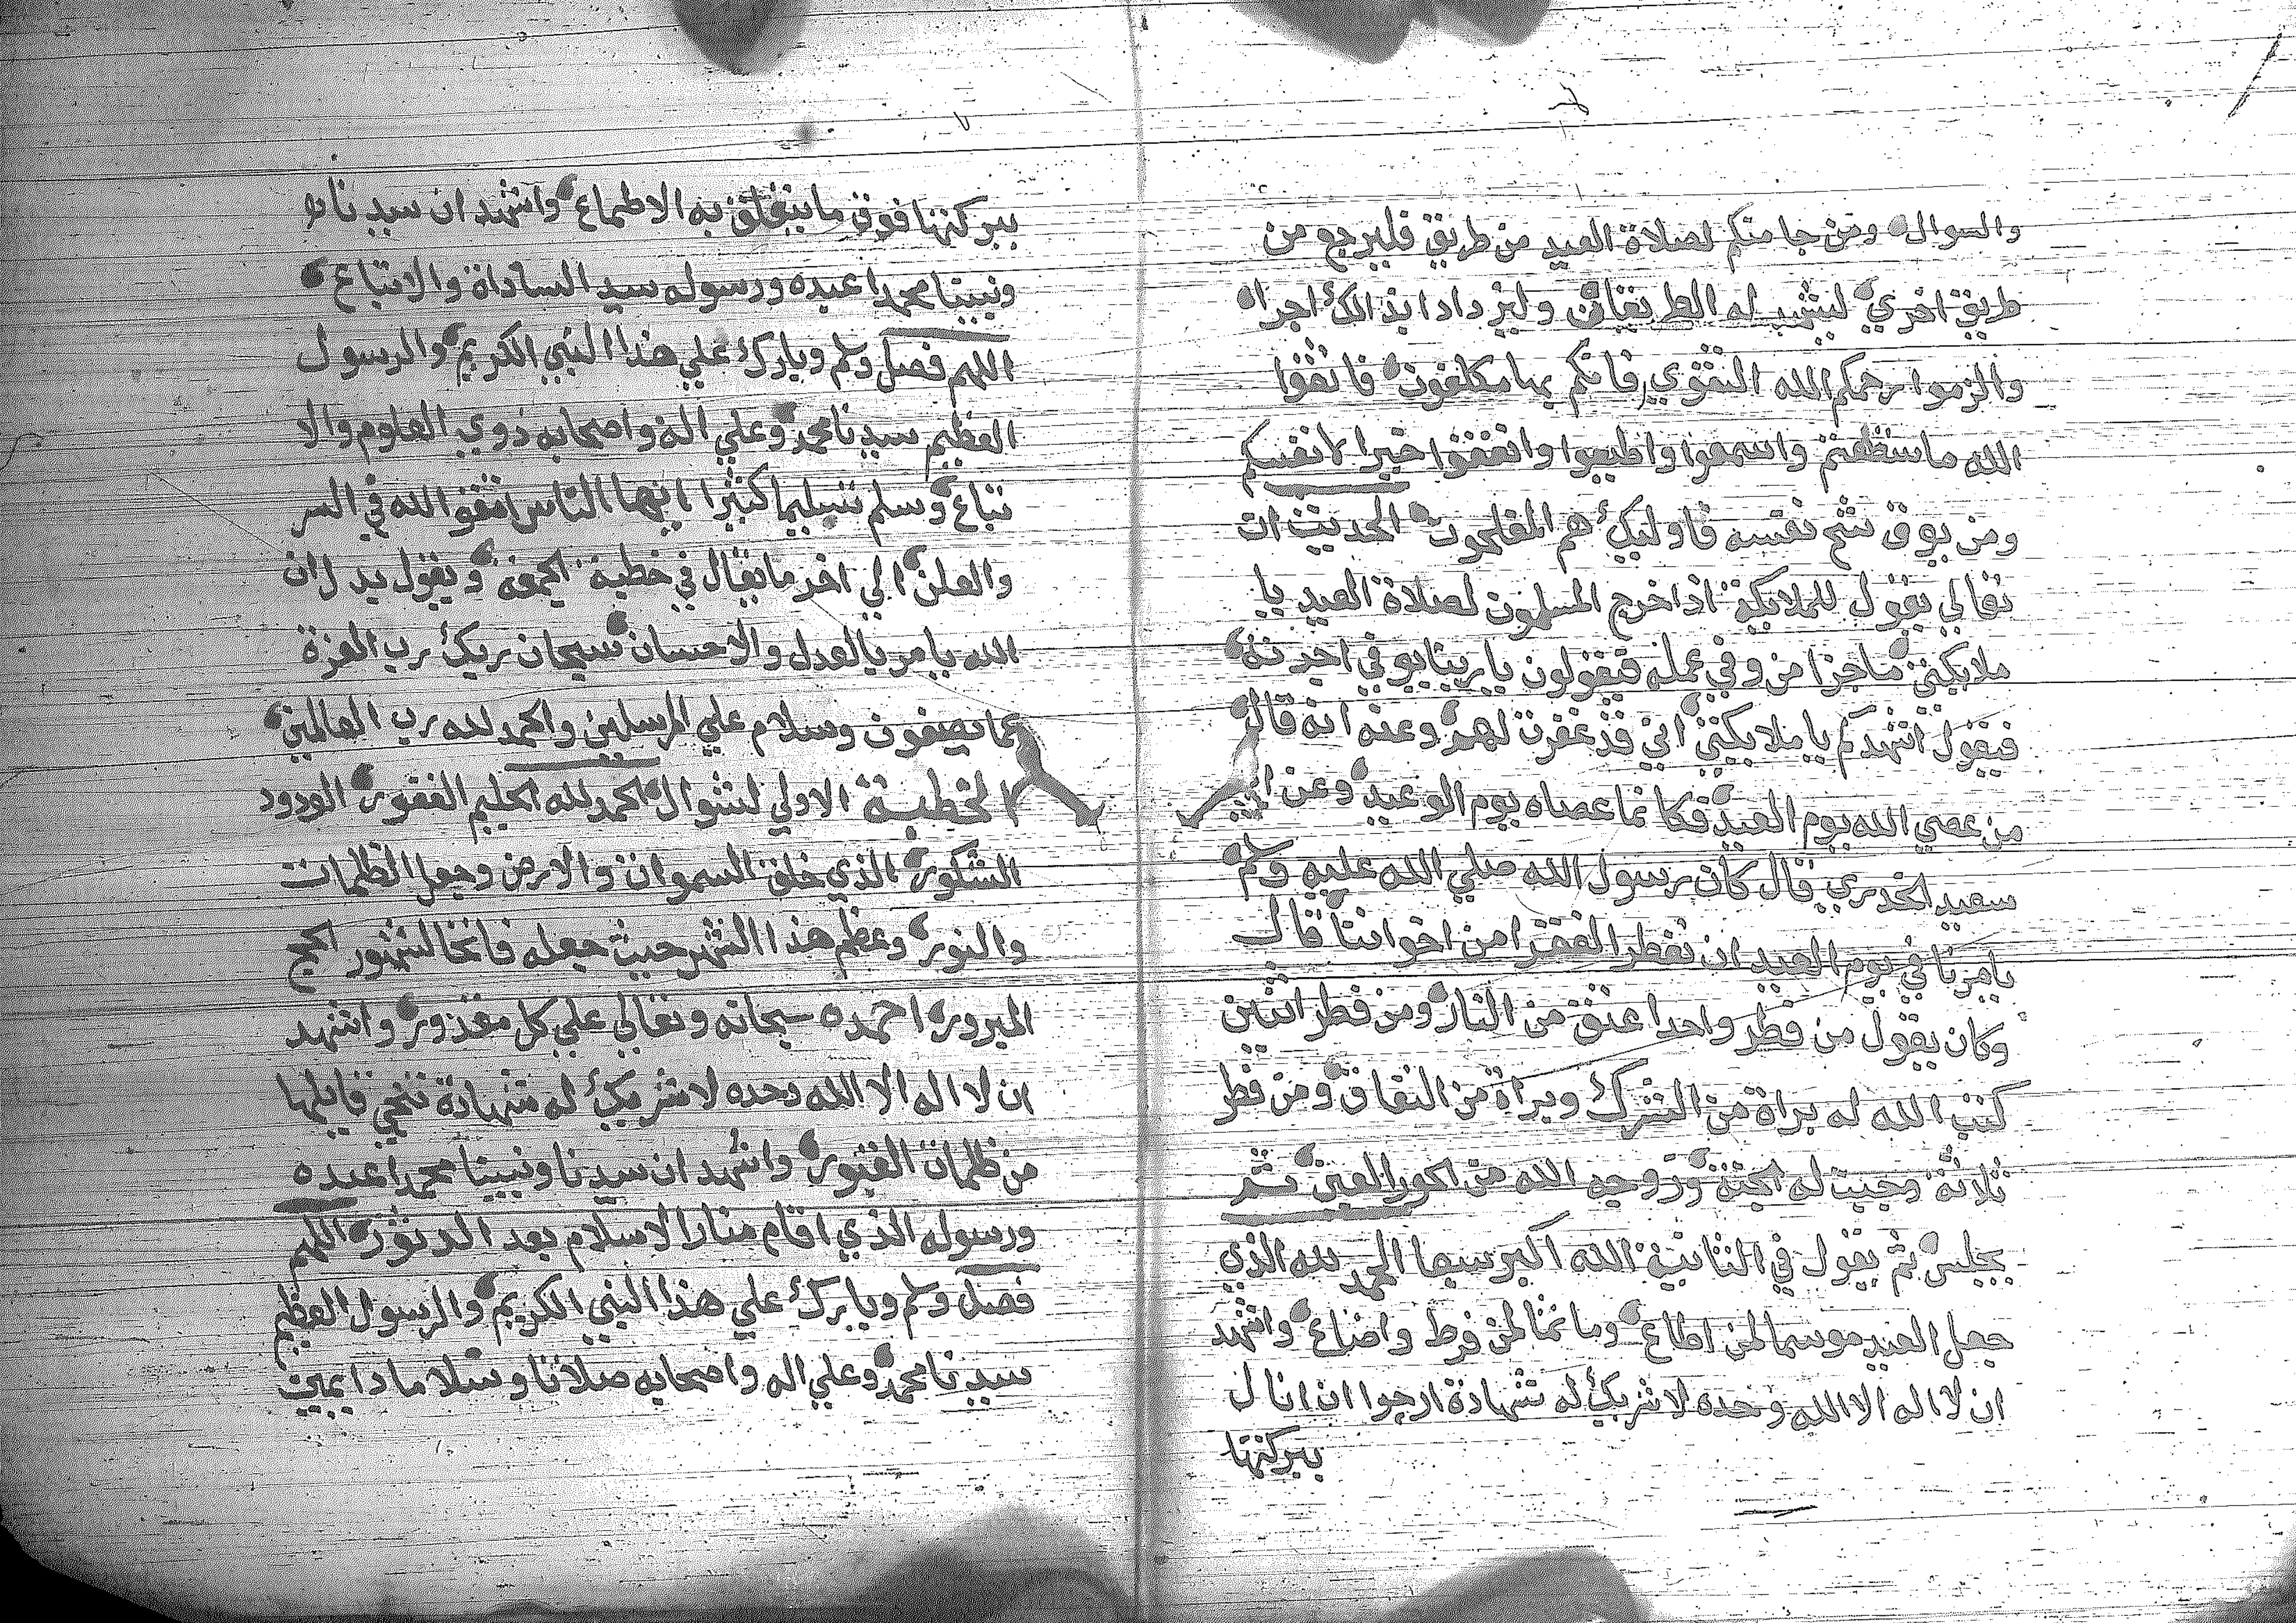 والسوال ومن جا منكم لصلاة العيد من طريق فليرجع من
طريق اخري ليشهد له الطريقان وليزداد ابذالك اجرا
والزموا رحمكم الله التقوي فانكم بها مكلفون فاتقوا
الله ماستطعتم واسمعوا واطيعوا وانفقوا خيرا لانفسكم
ومن يوق شح نفسه فاوليك هم المفلحون الحديث ان
تعالي يقول للملايكة اذا خرج المسلمون لصلاة العيد يا
ملايكتي ماجزا من وفي عمله فيقولون يا ربنا يوفي اجرته
فيقول اشهدكم يا ملايكتي اني قد غفرت لهم وعنه انه قال
من عصي الله يوم العيد فكانما عصاه يوم الوعيد وعن ابي
سعيد الخدري قال كان رسول الله صلي الله عليه وسلم
يامرنا في يوم العيد ان نفطر الفقرا من اخواننا قال
وكان يقول من فطر واحدا عتق من النار ومن فطر اثنين
كتب الله له براة من الشرك وبراة من النفاق ومن فطر
ثلاثة وجبت له الجنة وزوجه الله من الحور العين ثم
يجلس ثم يقول في الثانية الله اكبر سبعا الحمد لله الذي
جعل العيد موسما لمن اطاع وماتما لمن فرط واضاع واشهد
ان لا اله الا الله وحده لا شريك له شهادة ارجوا ان انال
ببركتها
ببركتها فوق ما يتعلق به الاطماع واشهد ان سيدنا
ونبينا محمدا عبده ورسوله سيد الساداة والاتباع
اللهم فصل وسلم وبارك علي هذا النبي الكريم والرسول
العظيم سيدنا محمد وعلي اله واصحابه ذوي العلوم والا
تباع وسلم تسليما كثيرا ايها الناس اتقو الله في السر
والعلن الي اخر ما يقال في خطبة الجمعة ويقول بدل ان
الله يامر بالعدل والاحسان سبحان ربك رب العزة
عما يصفون وسلام علي المرسلين والحمد لله رب العالمين
الخطبة الاولي لشوال الحمد لله الحليم الغفور الودود
الشكور الذي خلق السموات والارض وجعل الظلمات
والنور وعظم هذا الشهر حيث جعله فاتحا لشهور الحج
المبرور احمده سبحانه وتعالي علي كل مقدور واشهد
ان لا اله الا الله وحده لا شريك له شهادة تنجي قايلها
من ظلمات القبور واشهد ان سيدنا ونبينا محمدا عبده
ورسوله الذي اقام منار الاسلام بعد الدثور اللهم
فصل وسلم وبارك علي هذا النبي الكريم والرسول العظيم
سيدنا محمد وعلي اله واصحابه صلاتا وسلاما دايمين